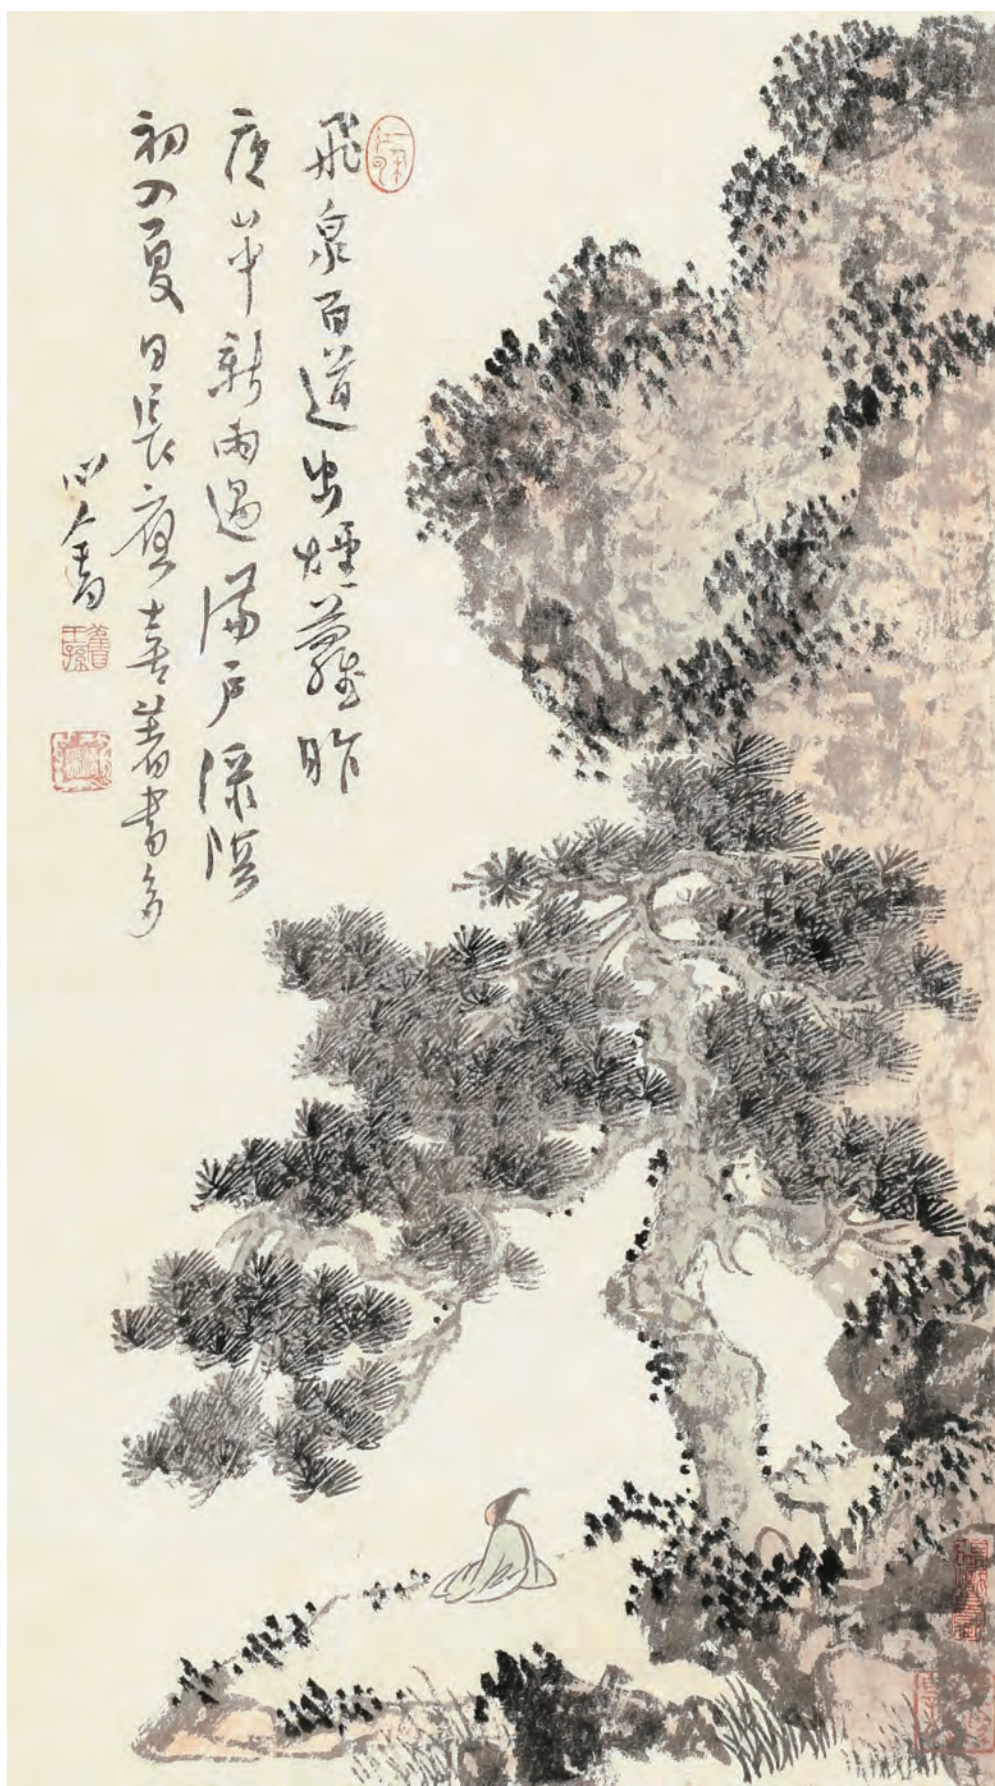 飛泉百道出煙蘿昨
夜山中新雨過滿戶綠陰
初入夏日長應喜著書多
心畬
舊王孫